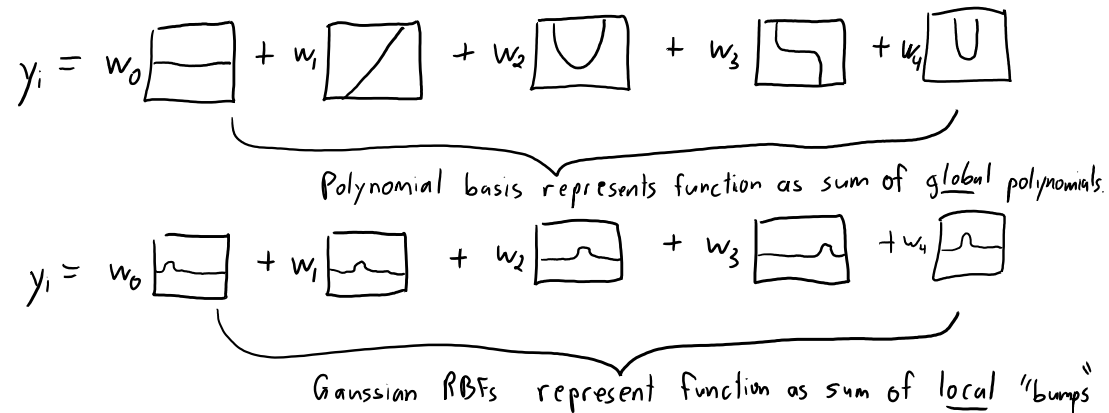 yᵢ = w₀ + w₁ + w₂ + w₃ + w₄
Polynomial basis represents function as sum of global polynomials.
yᵢ = w₀ + w₁ + w₂ + w₃ + w₄
Gaussian RBFs represent function as sum of local "bumps"